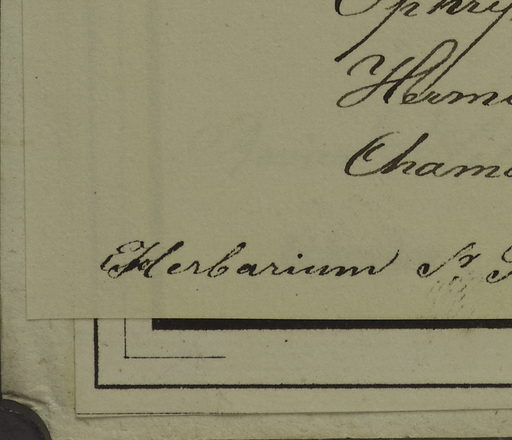 Ophry
Herm
Cham
Herbarium